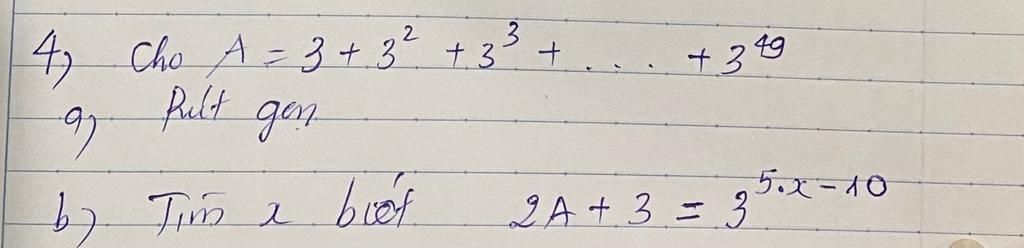 4) Cho A = 3 + 3² + 3³ + . . . . + 3⁴⁹
a) Rút gọn
b) Tìm x biết 2A + 3 = 3⁵·ˣ⁻¹⁰